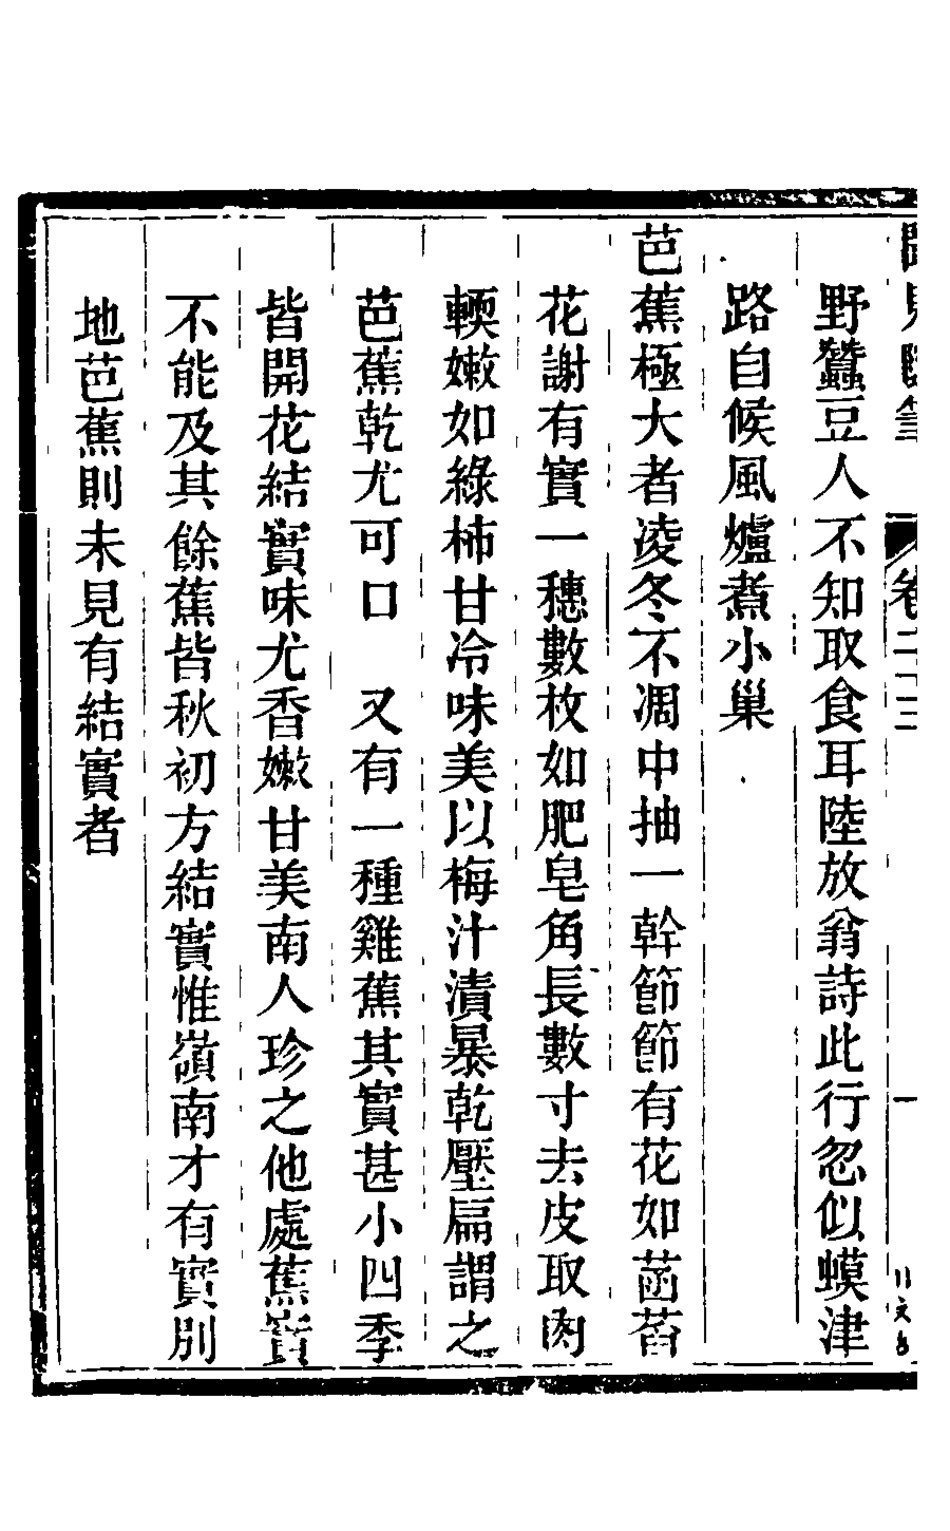 野蠶豆人不知取食耳陸放翁詩此行忽似蟆津
路自候風爐煮小巢
芭蕉極大者凌冬不凋中抽一幹節節有花如菡萏
花謝有實一穗數枚如肥皂角長數寸去皮取肉
輭嫩如綠柿甘冷味美以梅汁漬暴乾壓扁謂之
芭蕉乾尤可口　又有一種雞蕉其實甚小四季
皆開花結實味尤香嫩甘美南人珍之他處蕉實
不能及其餘蕉皆秋初方結實惟嶺南才有實別
地芭蕉則未見有結實者